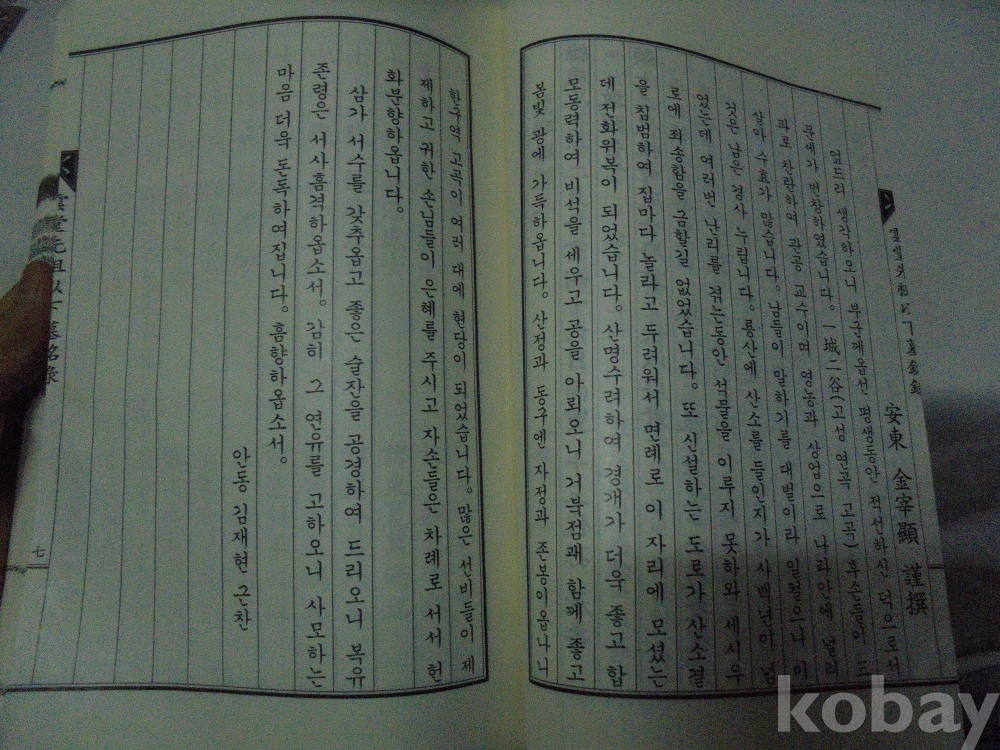 安東 金宰顯 謹撰
엎드려 생각하오니 부군께옵선 평생동안 적선하신 덕으로서
문세가 번창하였습니다. 一城二谷(고성 연곡 고곡) 후손들이
찬란하여 관공 교수이며 영농과 상업으로 나라안에 널리
많습니다. 남들이 말하기를 대벌이라 일컬으니 이
것은 남은 경사 누립니다. 룡산에 산소를 들인지가 사백년이 넘
었는데 여러번 난리를 겪는동안 석물을 이루지 못하와 세시우
로에 죄송함을 금할길 없었습니다. 또 신설하는 도로가 산소결
을 침범하여 집마다 놀라고 두려워서 면례로 이 자리에 모셨는
데 전화위복이 되었습니다. 산명수려하여 경개가 더욱 좋고 함
모동력하여 비석을 세우고 공을 아뢰오니 거북점괘 함께 좋고
봄빛 광에 가득하옵니다. 산정과 동구엔 자정과 존봉이옵나니
한구역 고쪽이 여러 대에 현당이 되었습니다. 많은 선비들이 제
제하고 귀한 손님들이 은혜를 주시고 자손들은 차례로 서서 헌
화분향하옵니다.
삼가 서수를 갖추옵고 좋은 술잔을 공경하여 드리오니 복유
존령은 서사흠격하옵소서. 감히 그 연유를 고하오니 사모하는
마음 더욱 돈독하여집니다. 흠향하옵소서.
안동 김재현 근찬
雲堂先祖以下墓銘錄
七
kobay